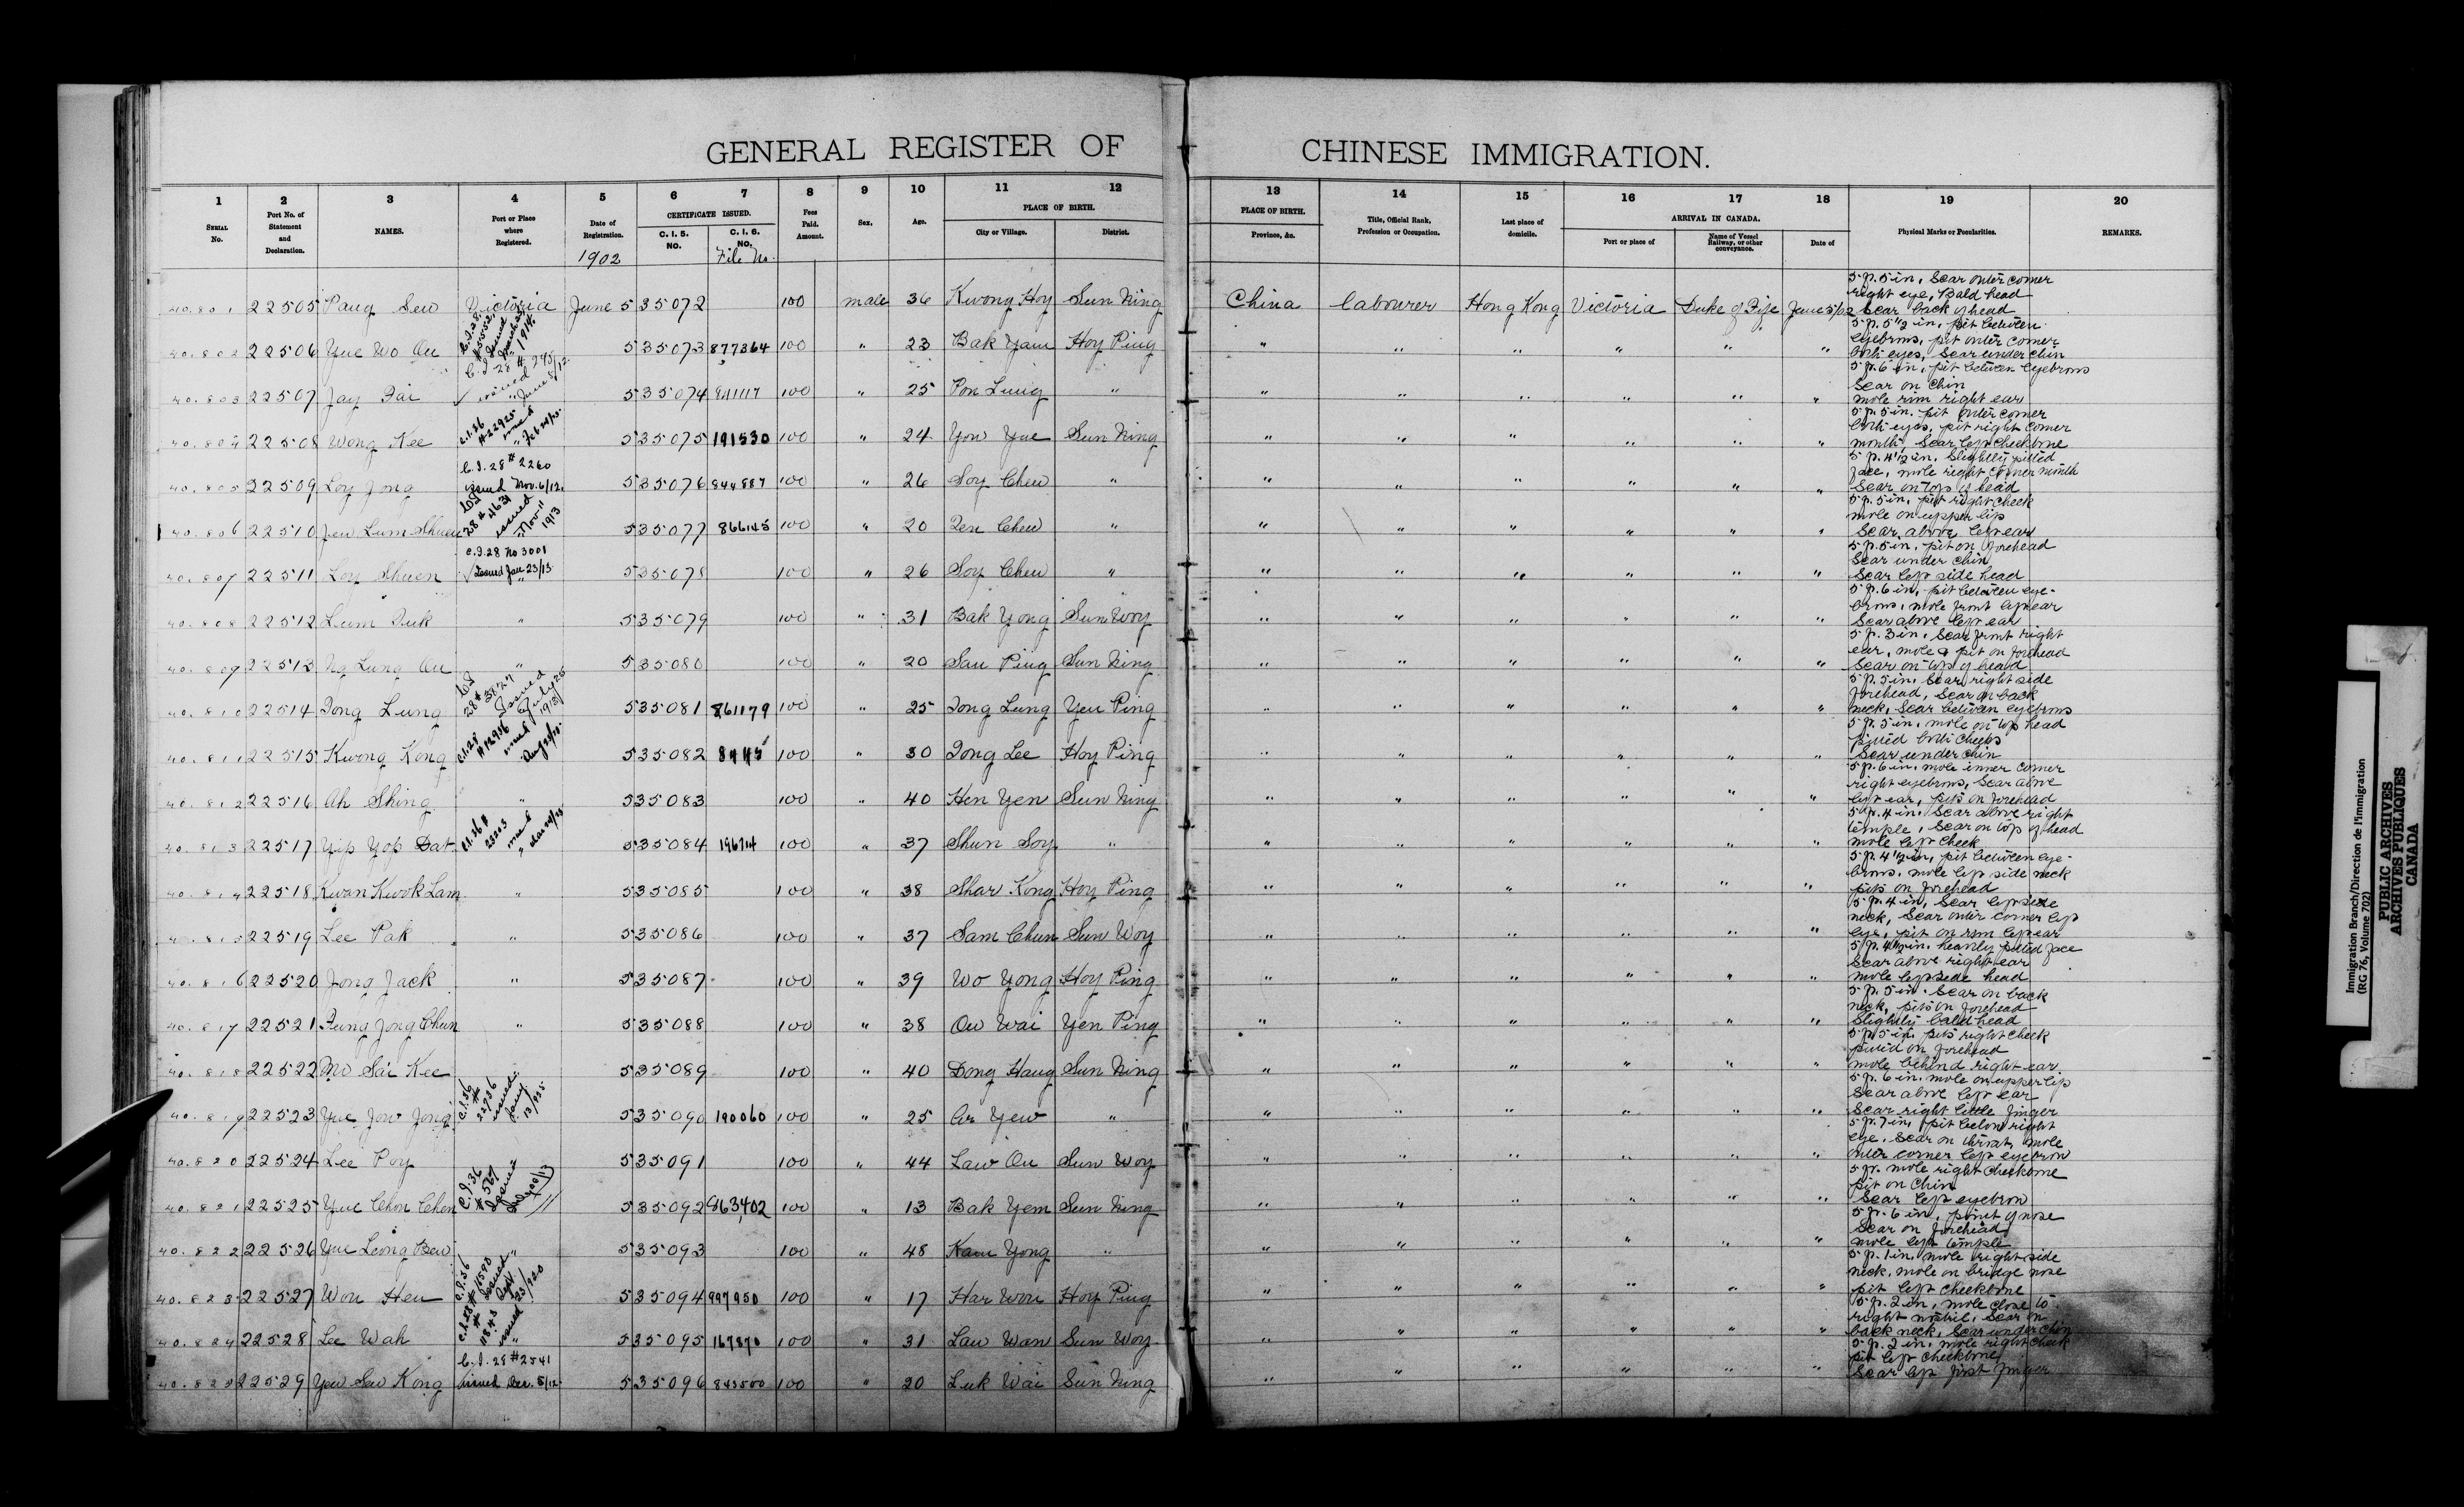 GENERAL REGISTER OF CHINESE IMMIGRATION.
1 2 3 4 5 6 7 8 9 10 11 12 13 14 15 16 17 18 19 20
SERIAL No.
Port No. of Statement and Declaration.
NAMES.
Port or Place where Registered.
Date of Registration.
1902
CERTIFICATE ISSUED.
C. I. 5. NO.
C. I. 6. NO.
File No.
Fees Paid. Amount.
Sex.
Age.
PLACE OF BIRTH.
City or Village.
District.
PLACE OF BIRTH.
Province, &c.
Title, Official Rank, Profession or Occupation.
Last place of domicile.
ARRIVAL IN CANADA.
Port or place of
Name of Vessel Railway, or other conveyance.
Date of
Physical Marks or Peculiarities.
REMARKS.
40.801 22505 Pang Sew Victoria June 5 35072 100 male 36 Kwong Hoy Sun Ning China Labourer Hong Kong Victoria Duke of Fife June 5/02 5 f. 5 in, Scar outer corner right eye, Bald head Scar back of head
40.802 22506 Yue Wo Ou 5 35073 877364 100 " 23 Bak Yam Hoy Ping " " " " " " 5 f. 5 1/2 in, pit between eyebrows, pit outer corner both eyes, Scar under chin
40.803 22507 Jay Fai C.I. 28 # 745 issued June 5/12 5 35074 841117 100 " 25 Pon Lung " " " " " " " 5 f. 6 in, pit between eyebrows Scar on chin mole rim right ear
40.804 22508 Wong Kee C.I.36 #22925 issued Feb 5 35075 191530 100 " 24 Yow Yue Sun Ning " " " " " " 5 f. 5 in. pit outer corner both eyes, pit right corner mouth, Scar left cheekbone
40.805 22509 Loy Jong C.I. 28 # 2260 issued Nov. 6/12. 5 35076 844887 100 " 26 Soy Chew " " " " " " " 5 f. 4 1/2 in, Slightly pitted face, mole right corner mouth Scar on top of head
40.806 22510 Jew Lum Shuen C.I. 28 # 4631 issued Nov 11 1913 5 35077 866145 100 " 20 Zen Chew " " " " " " " 5 f. 5 in, pit right cheek mole on upper lip Scar above left ear
40.807 22511 Loy Shuen C.I.28 No 3001 Issued Jan 23/13. 5 35078 100 " 26 Soy Chew " " " " " " " 5 f. 5 in, pit on forehead Scar under chin Scar left side head
40.808 22512 Lum Duk " 5 35079 100 " 31 Bak Yong Sun Woy " " " " " " 5 f. 6 in, pit between eyebrows, mole front left ear Scar above left ear
40.809 22513 Ng Lung Ou " 5 35080 100 " 20 Sau Ping Sun Ning " " " " " " 5 f. 3 in, Scar front right ear, mole & pit on forehead Scar on top of head
40.810 22514 Jong Lung C.I. 28 # 3827 Issued July 26 1913 5 35081 861179 100 " 25 Jong Lung Yen Ping " " " " " " 5 f. 5 in. Scar right side forehead, Scar on back neck, Scar between eyebrows
40.811 22515 Kwong Kong C.I.28 #12956 issued 5 35082 100 " 30 Jong Lee Hoy Ping " " " " " " 5 f. 5 in, mole on top head pitted both cheeks Scar under chin
40.812 22516 Ah Shing " 5 35083 100 " 40 Hen Yen Sun Ning " " " " " " 5 f. 6 in. mole inner corner right eyebrows, Scar above left ear, pits on forehead
40.813 22517 Yip Yop Dat C.I.36 # 23203 issued 5 35084 196714 100 " 37 Shun Soy " " " " " " " 5 f. 4 in. Scar above right temple, Scar on top of head mole left cheek
40.814 22518 Kwan Kwok Lam " 5 35085 100 " 38 Shar Kong Hoy Ping " " " " " " 5 f. 4 1/2 in, pit between eyebrows. mole left side neck pits on forehead
40.815 22519 Lee Pak " 5 35086 100 " 37 Sam Chun Sun Woy " " " " " " 5 f. 4 in, Scar left side neck, Scar outer corner left eye, pit on rim left ear
40.816 22520 Jong Jack " 5 35087 100 " 39 Wo Yong Hoy Ping " " " " " " 5 f. 4 1/2 in. heavily pitted face Scar above right ear mole left side head
40.817 22521 Fung Jong Chun " 5 35088 100 " 38 Ou Wai Yen Ping " " " " " " 5 f. 5 in. Scar on back neck, pits on forehead Slightly bald head
40.818 22522 Mo Sai Kee 5 35089 100 " 40 Dong Hang Sun Ning " " " " " " 5 f. 5 in, pits right cheek pitted on forehead mole behind right ear
40.819 22523 Yue Jow Jong C.I.36 # 22736 issued Jany 5 35090 190060 100 " 25 Ar Yew " " " " " " " 5 f. 6 in. mole on upper lip Scar above left ear Scar right little finger
40.820 22524 Lee Poy 5 35091 100 " 44 Law Ou Sun Woy " " " " " " 5 f. 7 in, pit below right eye, Scar on throat, mole outer corner left eyebrow
40.821 22525 Yue Chon Chen C.I.36 # 567 Issued July 5 35092 863402 100 " 13 Bak Yem Sun Ning " " " " " " 5 f. mole right cheekbone pit on chin Scar left eyebrow
40.822 22526 Yue Leong Bew " 5 35093 100 " 48 Kam Yong " " " " " " " 5 f. 6 in, point of nose Scar on forehead mole left temple
40.823 22527 Won Hen C.I.36 issued 5 35094 997950 100 " 17 Har Won Hoy Ping " " " " " " 5 f. 1 in. mole right side neck, mole on bridge nose pit left cheekbone
40.824 22528 Lee Wah issued 5 35095 167870 100 " 31 Law Wan Sun Woy " " " " " " 5 f. 2 in, mole close to right nostril, Scar on back neck, Scar under chin
40.825 22529 Yew Sew Kong C.I. 28 #2541 issued Dec. 5/12. 5 35096 843500 100 " 20 Luk Wai Sun Ning " " " " " " 5 f. 2 in. mole right cheek pit left cheekbone Scar left first finger
Immigration Branch/Direction de l'immigration
(RG 76, Volume 702)
PUBLIC ARCHIVES
ARCHIVES PUBLIQUES
CANADA